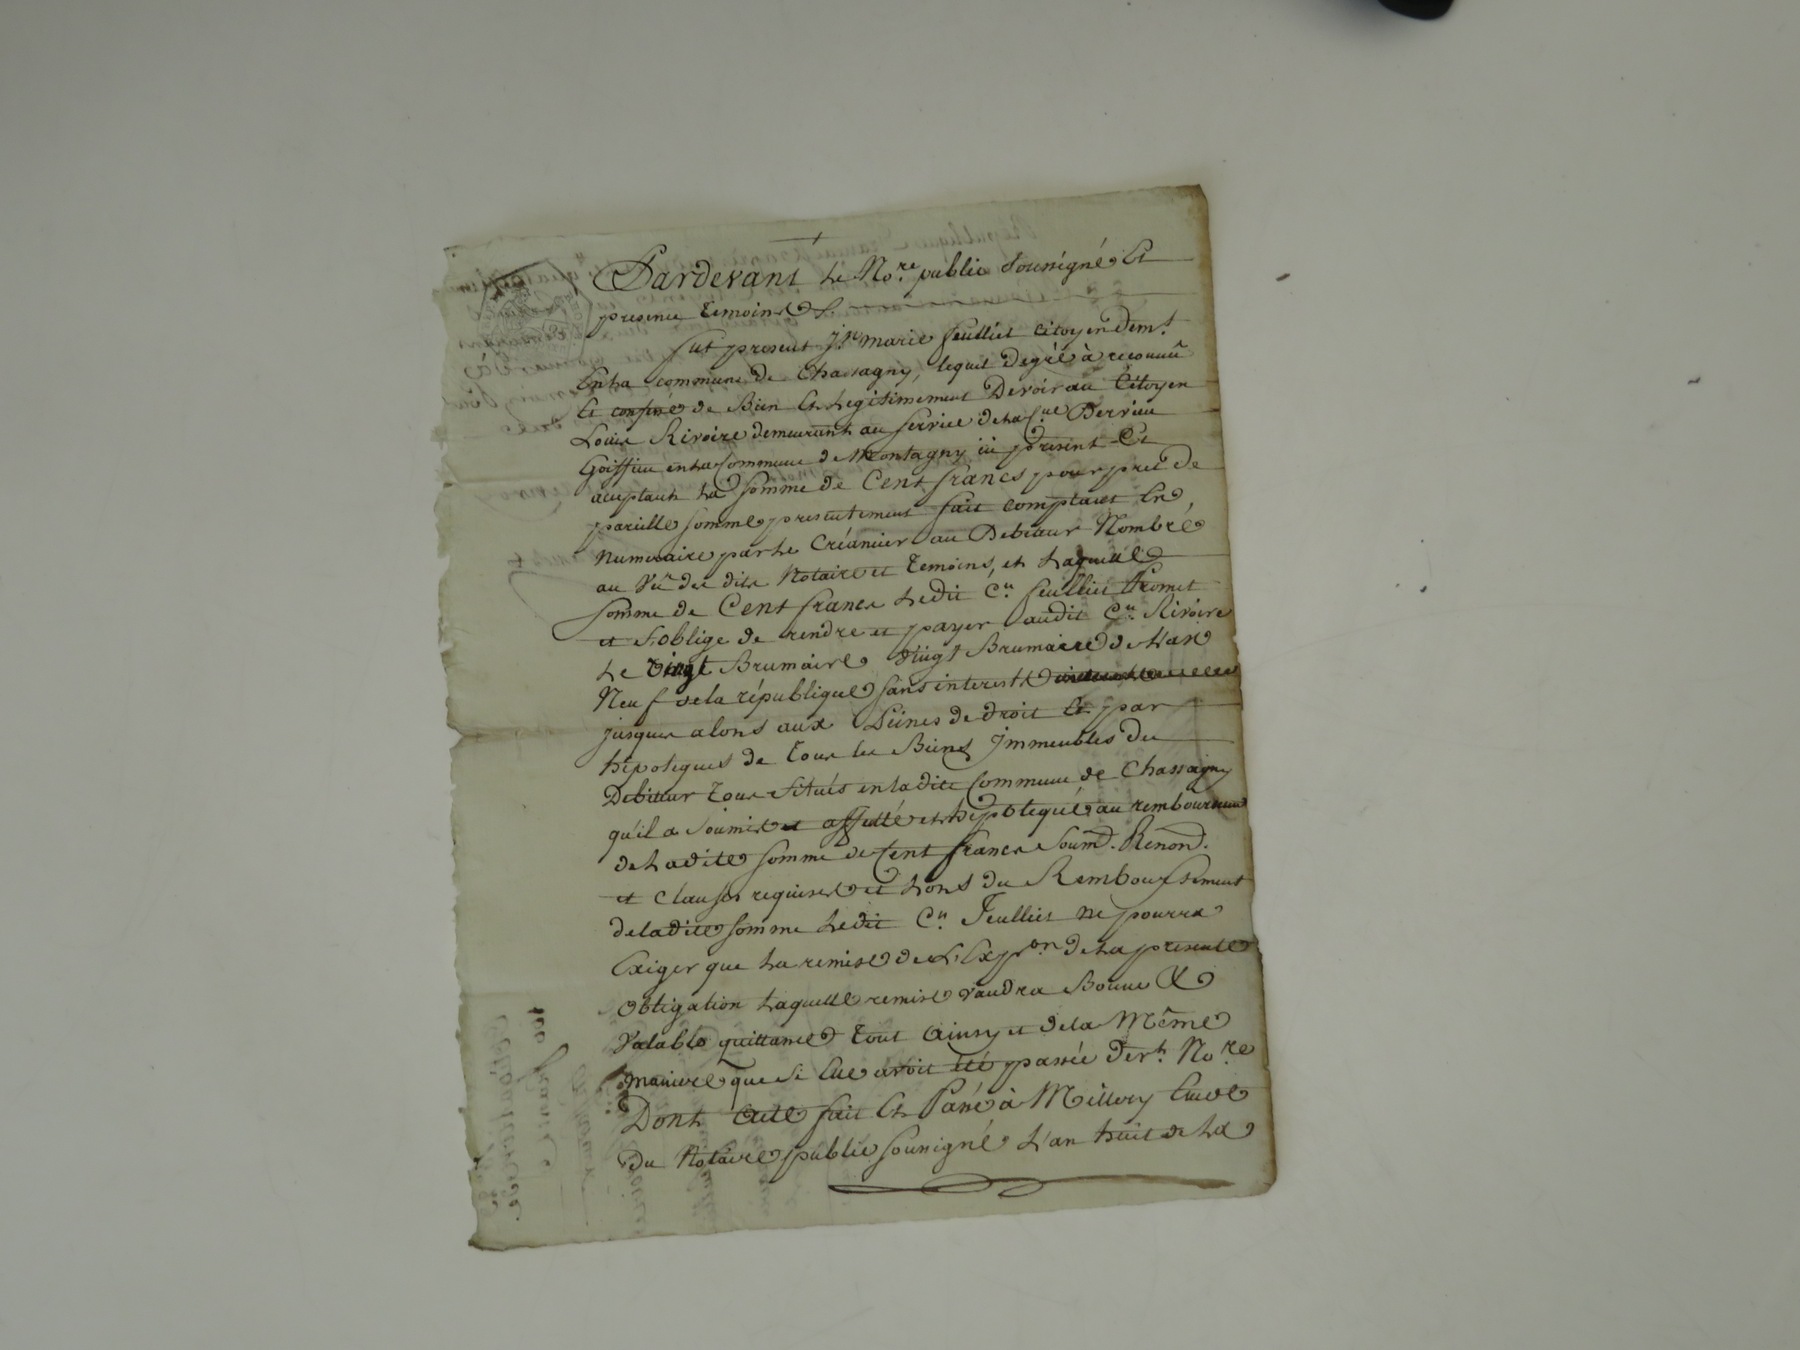 Pardevant Le No.re public soussigné Et
presence temoins &.
fut present j.n marie feulliet citoyen dem.t
En La commune de Chassagny, lequel de gré à reconnu
Et confessé de Bien Et Legitimement Devoir au Citoyen
Louis Rivoire demeurant au service de La C.ne Dervieu
Goiffieu en La Commune de Montagny ici présent Et
aceptant La somme de Cent francs pour pret de
pareille somme presentement fait comptant En
numeraire par Le Créancier au Debiteur Nombré
au Vû des dits Notaire et Temoins, et Laquelle
somme de Cent francs Ledit C.n feulliet Promet
et s'oblige de rendre et payer audit C.n Rivoire
Le vingt Brumaire vingt Brumaire de L'an
Neuf de la république sans interest
jusques alors aux Peines de droit Et par
hipoteques de tous les Biens Immeubles du
Debiteur tous situés en ladite Commune de Chassagny
qu'il a soumis et affecté et hipotequé au remboursement
de Ladite somme de Cent francs soum.d. Renond.
et clauses requises et Lors du Remboursement
de ladite somme Ledit C.n Feulliet ne pourra
Exiger que La remise de L'Exp.on de La presente
obligation Laquelle remise vaudra Bonne &
Valable quittance tout ainsy et de la Même
maniere que si Elle avoit été passée der.t No.re
Dont acte fait Et Passé à Millery Etude
Du Notaire public soussigné L'an huit de La